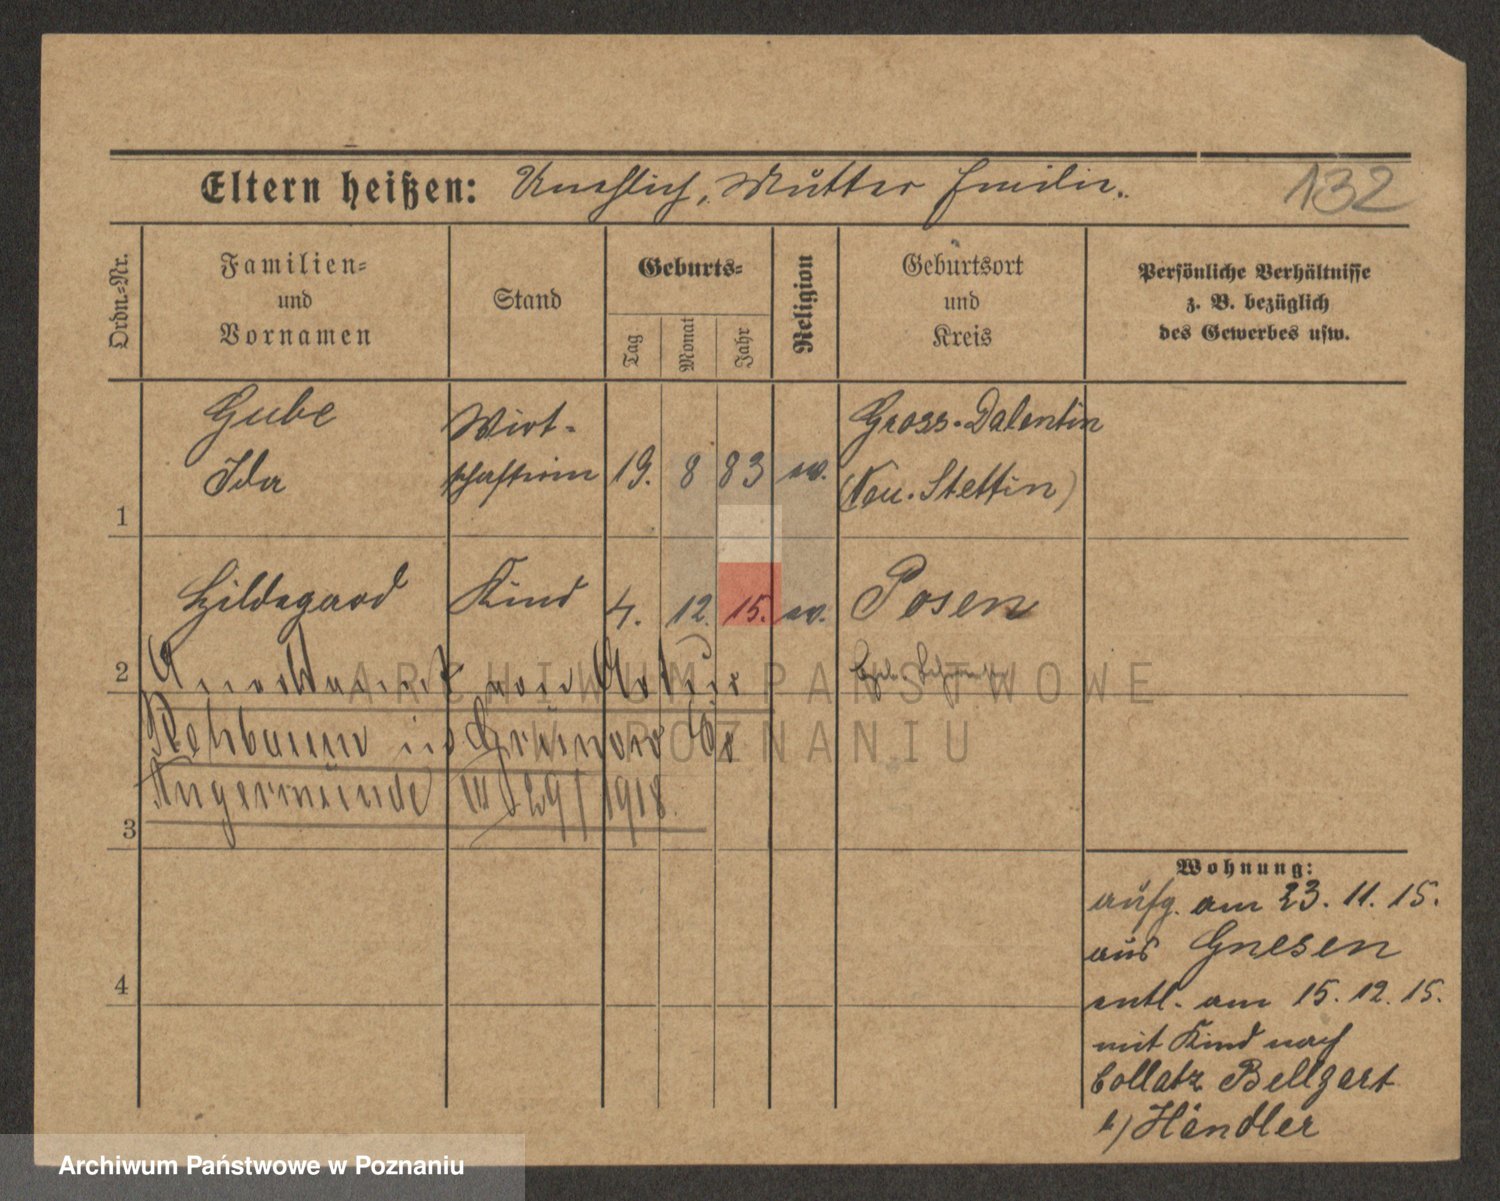 Eltern heißen: Unehlich, Mutter Emilie.
132
Ordn.-Nr.
Familien-
und
Vornamen
Stand
Geburts-
Tag
Monat
Jahr
Religion
Geburtsort
und
Kreis
Persönliche Verhältnisse
z. B. bezüglich
des Gewerbes usw.
1
Gube
Ida
Wirt-
schafterin
19.
8
83
ev.
Gross-Dalentin
(Neu-Stettin)
2
Hildegard
Kind
4.
12.
15.
ev.
Posen
Anerkannt von Artur
Rehbaum in
Angermünde
1918.
3
4
Wohnung:
aufg. am 23. 11. 15.
aus Gnesen
entl. am 15. 12. 15.
mit Kind nach
Collatz Bellgart
b/ Händler
ARCHIWUM PAŃSTWOWE
W POZNANIU
Archiwum Państwowe w Poznaniu